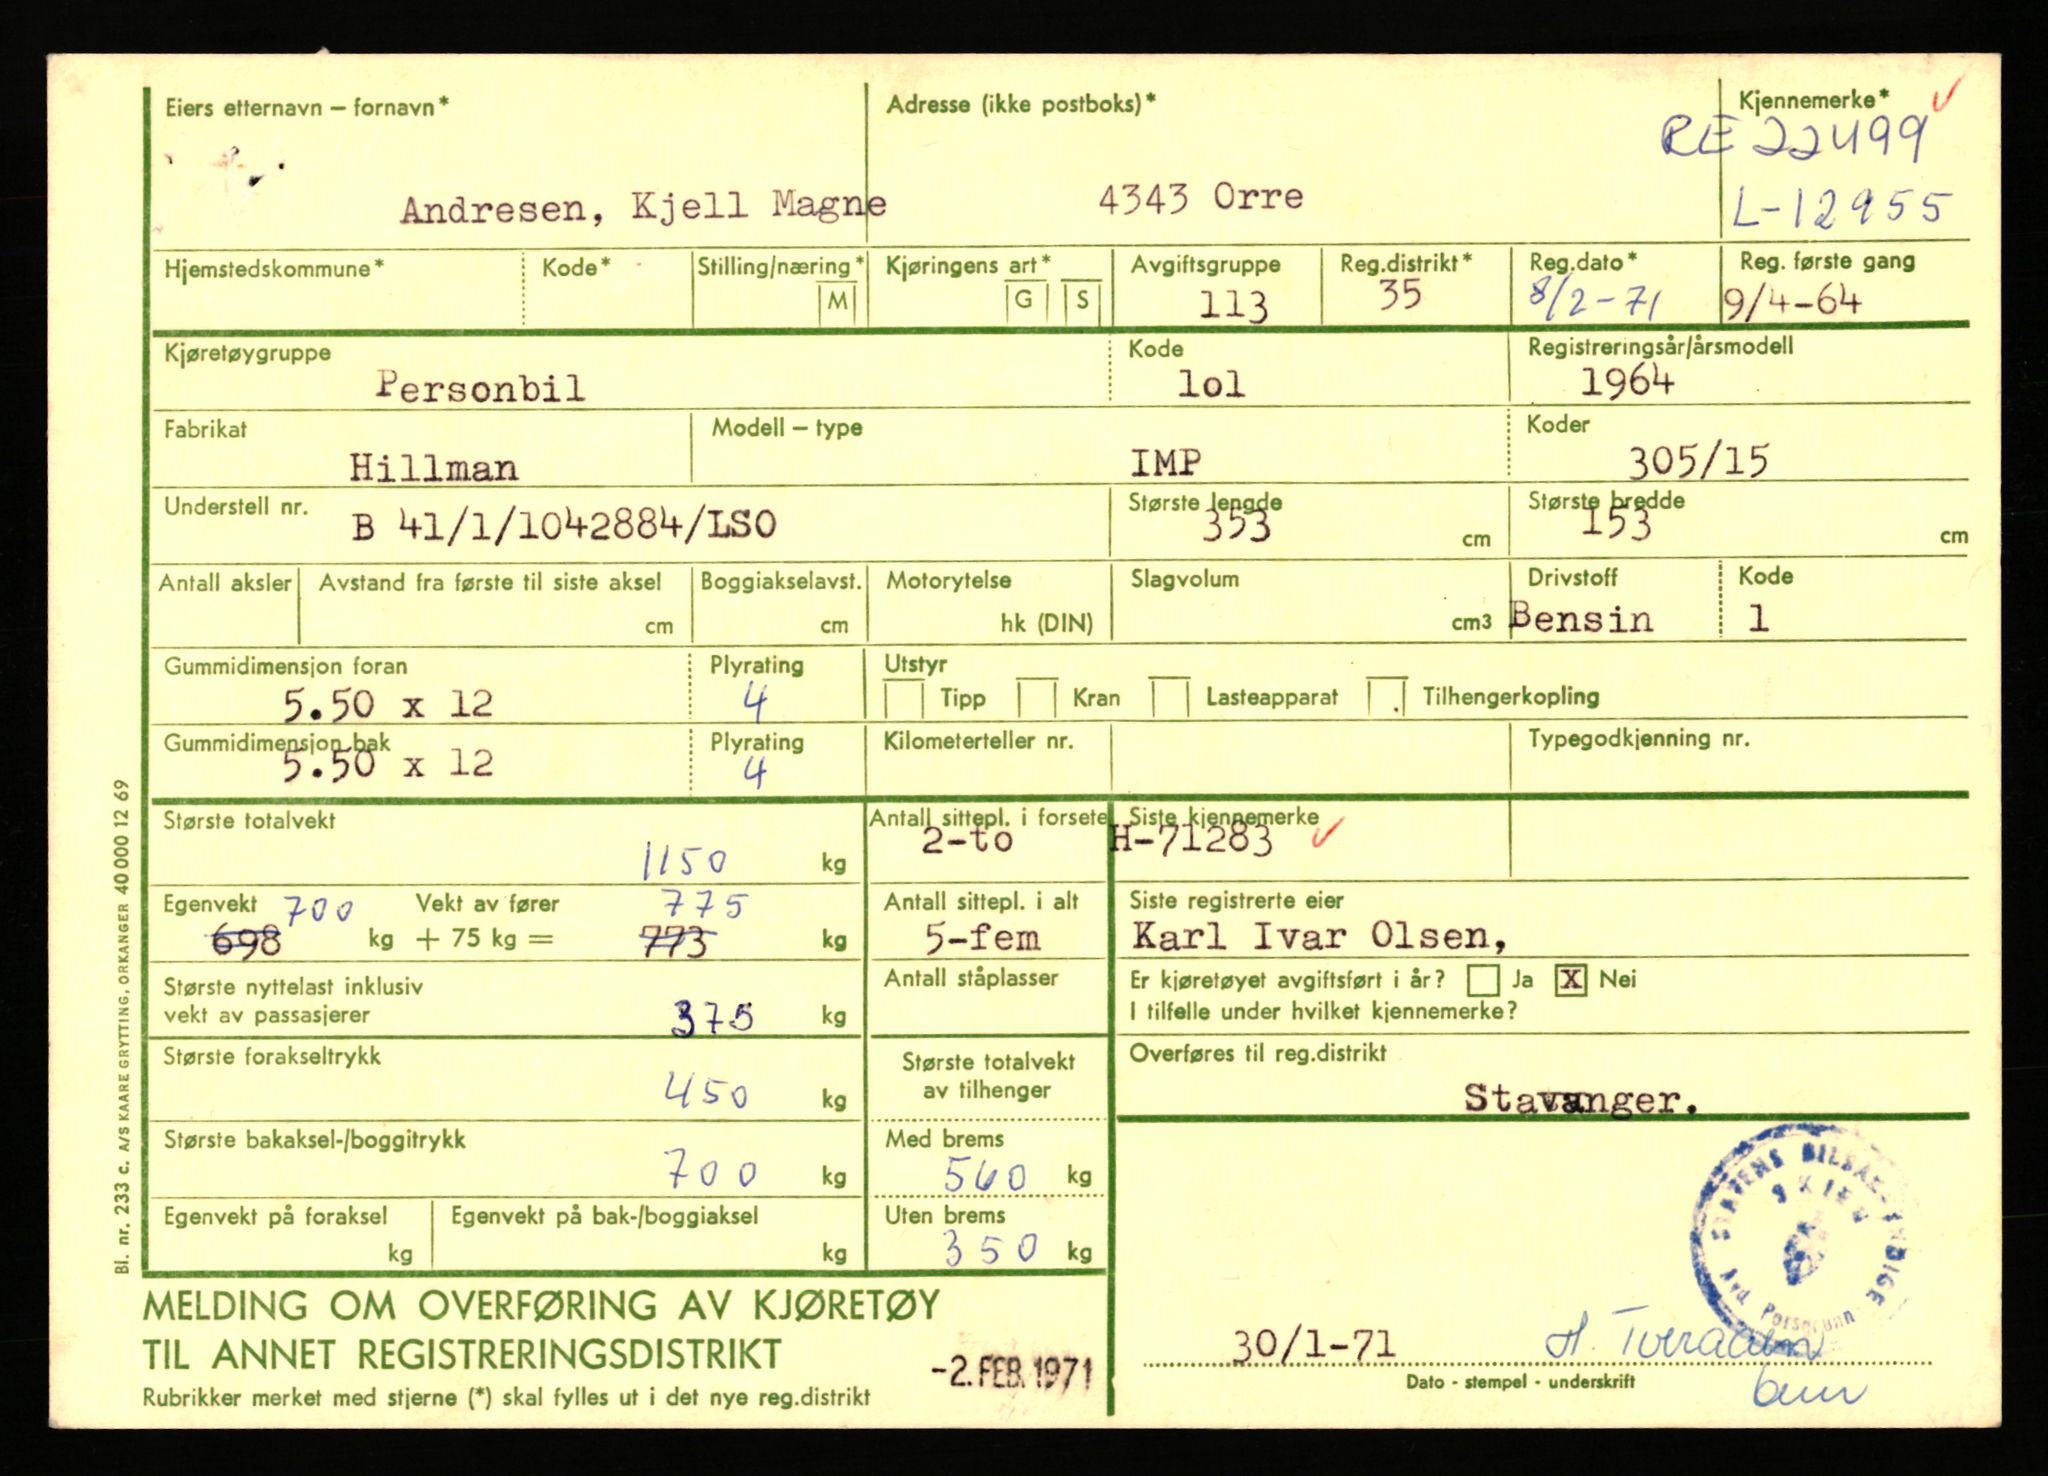 Eiers etternavn – fornavn*
Adresse (ikke postboks)*
Kjennemerke*
RE 22499
Andresen, Kjell Magne
4343 Orre
L-12955
Hjemstedskommune*
Kode*
Stilling/næring*
M
Kjøringens art*
G
S
Avgiftsgruppe
113
Reg.distrikt*
35
Reg.dato*
8/2-71
Reg. første gang
9/4-64
Kjøretøygruppe
Personbil
Kode
lol
Registreringsår/årsmodell
1964
Fabrikat
Hillman
Modell – type
IMP
Koder
305/15
Understell nr.
B 41/1/1042884/LSO
Største lengde
353
cm
Største bredde
153
cm
Antall aksler
Avstand fra første til siste aksel
cm
Boggiakselavst.
cm
Motorytelse
hk (DIN)
Slagvolum
cm3
Drivstoff
Bensin
Kode
1
Gummidimensjon foran
5.50 x 12
Plyrating
4
Utstyr
Tipp
Kran
Lasteapparat
Tilhengerkopling
Gummidimensjon bak
5.50 x 12
Plyrating
4
Kilometerteller nr.
Typegodkjenning nr.
Største totalvekt
1150
kg
Antall sittepl. i forsete
2-to
Siste kjennemerke
H-71283
Egenvekt 700
698 kg
Vekt av fører 775
+ 75 kg = 773 kg
Antall sittepl. i alt
5-fem
Siste registrerte eier
Karl Ivar Olsen,
Største nyttelast inklusiv
vekt av passasjerer
375 kg
Antall ståplasser
Er kjøretøyet avgiftsført i år? Ja X Nei
I tilfelle under hvilket kjennemerke?
Største forakseltrykk
450 kg
Største totalvekt
av tilhenger
Overføres til reg.distrikt
Stavanger.
Største bakaksel-/boggitrykk
700 kg
Med brems
560 kg
Egenvekt på foraksel
kg
Egenvekt på bak-/boggiaksel
kg
Uten brems
350 kg
STATENS BILSAKKYNDIGE
SKIEN
Avd Porsgrunn
MELDING OM OVERFØRING AV KJØRETØY
TIL ANNET REGISTRERINGSDISTRIKT
Rubrikker merket med stjerne (*) skal fylles ut i det nye reg.distrikt
-2. FEB. 1971
30/1-71
Dato - stempel - underskrift
Bl. nr. 233 c. A/S KAARE GRYTTING, ORKANGER 40 000 12 69